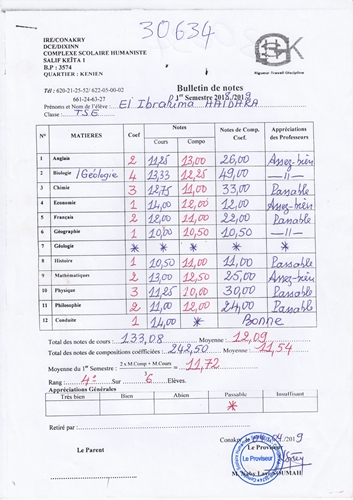 30634
IRE/CONAKRY
DCE/DIXINN
COMPLEXE SCOLAIRE HUMANISTE
SALIF KEÏTA 1
B.P : 3574
QUARTIER : KENIEN
Rigueur Travail Discipline
Tél : 620-21-25-52/ 622-05-00-02
661-24-63-27
Bulletin de notes
1er Semestre 2018/2019
Prénoms et Nom de l'élève : El Ibrahima HAIDARA
Classe : TSE
N° MATIERES Coef Notes Notes de Comp. Coef. Appréciations des Professeurs
Cours Compo
1 Anglais 2 11,25 13,00 26,00 Assez-bien
2 Biologie /Géologie 4 13,33 12,25 49,00 —11—
3 Chimie 3 12,75 11,00 33,00 Passable
4 Economie 1 14,00 12,00 12,00 Assez-bien
5 Français 2 12,00 11,00 22,00 Passable
6 Géographie 1 10,00 10,50 10,50 —11—
7 Géologie * * * * *
8 Histoire 1 10,50 11,00 11,00 Passable
9 Mathématiques 2 13,00 12,50 25,00 Assez-bien
10 Physique 3 11,25 10,00 30,00 Passable
11 Philosophie 2 11,00 12,00 24,00 Passable
12 Conduite 1 14,00 * Bonne
Total des notes de cours : 133,08 Moyenne : 12,09
Total des notes de compositions coéfficiées : 242,50 Moyenne : 11,54
Moyenne du 1er Semestre : 2 x M Comp + M Cours = 11,72
3
Rang : 4e Sur 6 Elèves.
Appréciations Générales
Très bien Bien Abien Passable Insuffisant
*
Retiré par :
Conakry, le 04/2019
Le Parent
Le Proviseur
Le Proviseur
SOUMAH